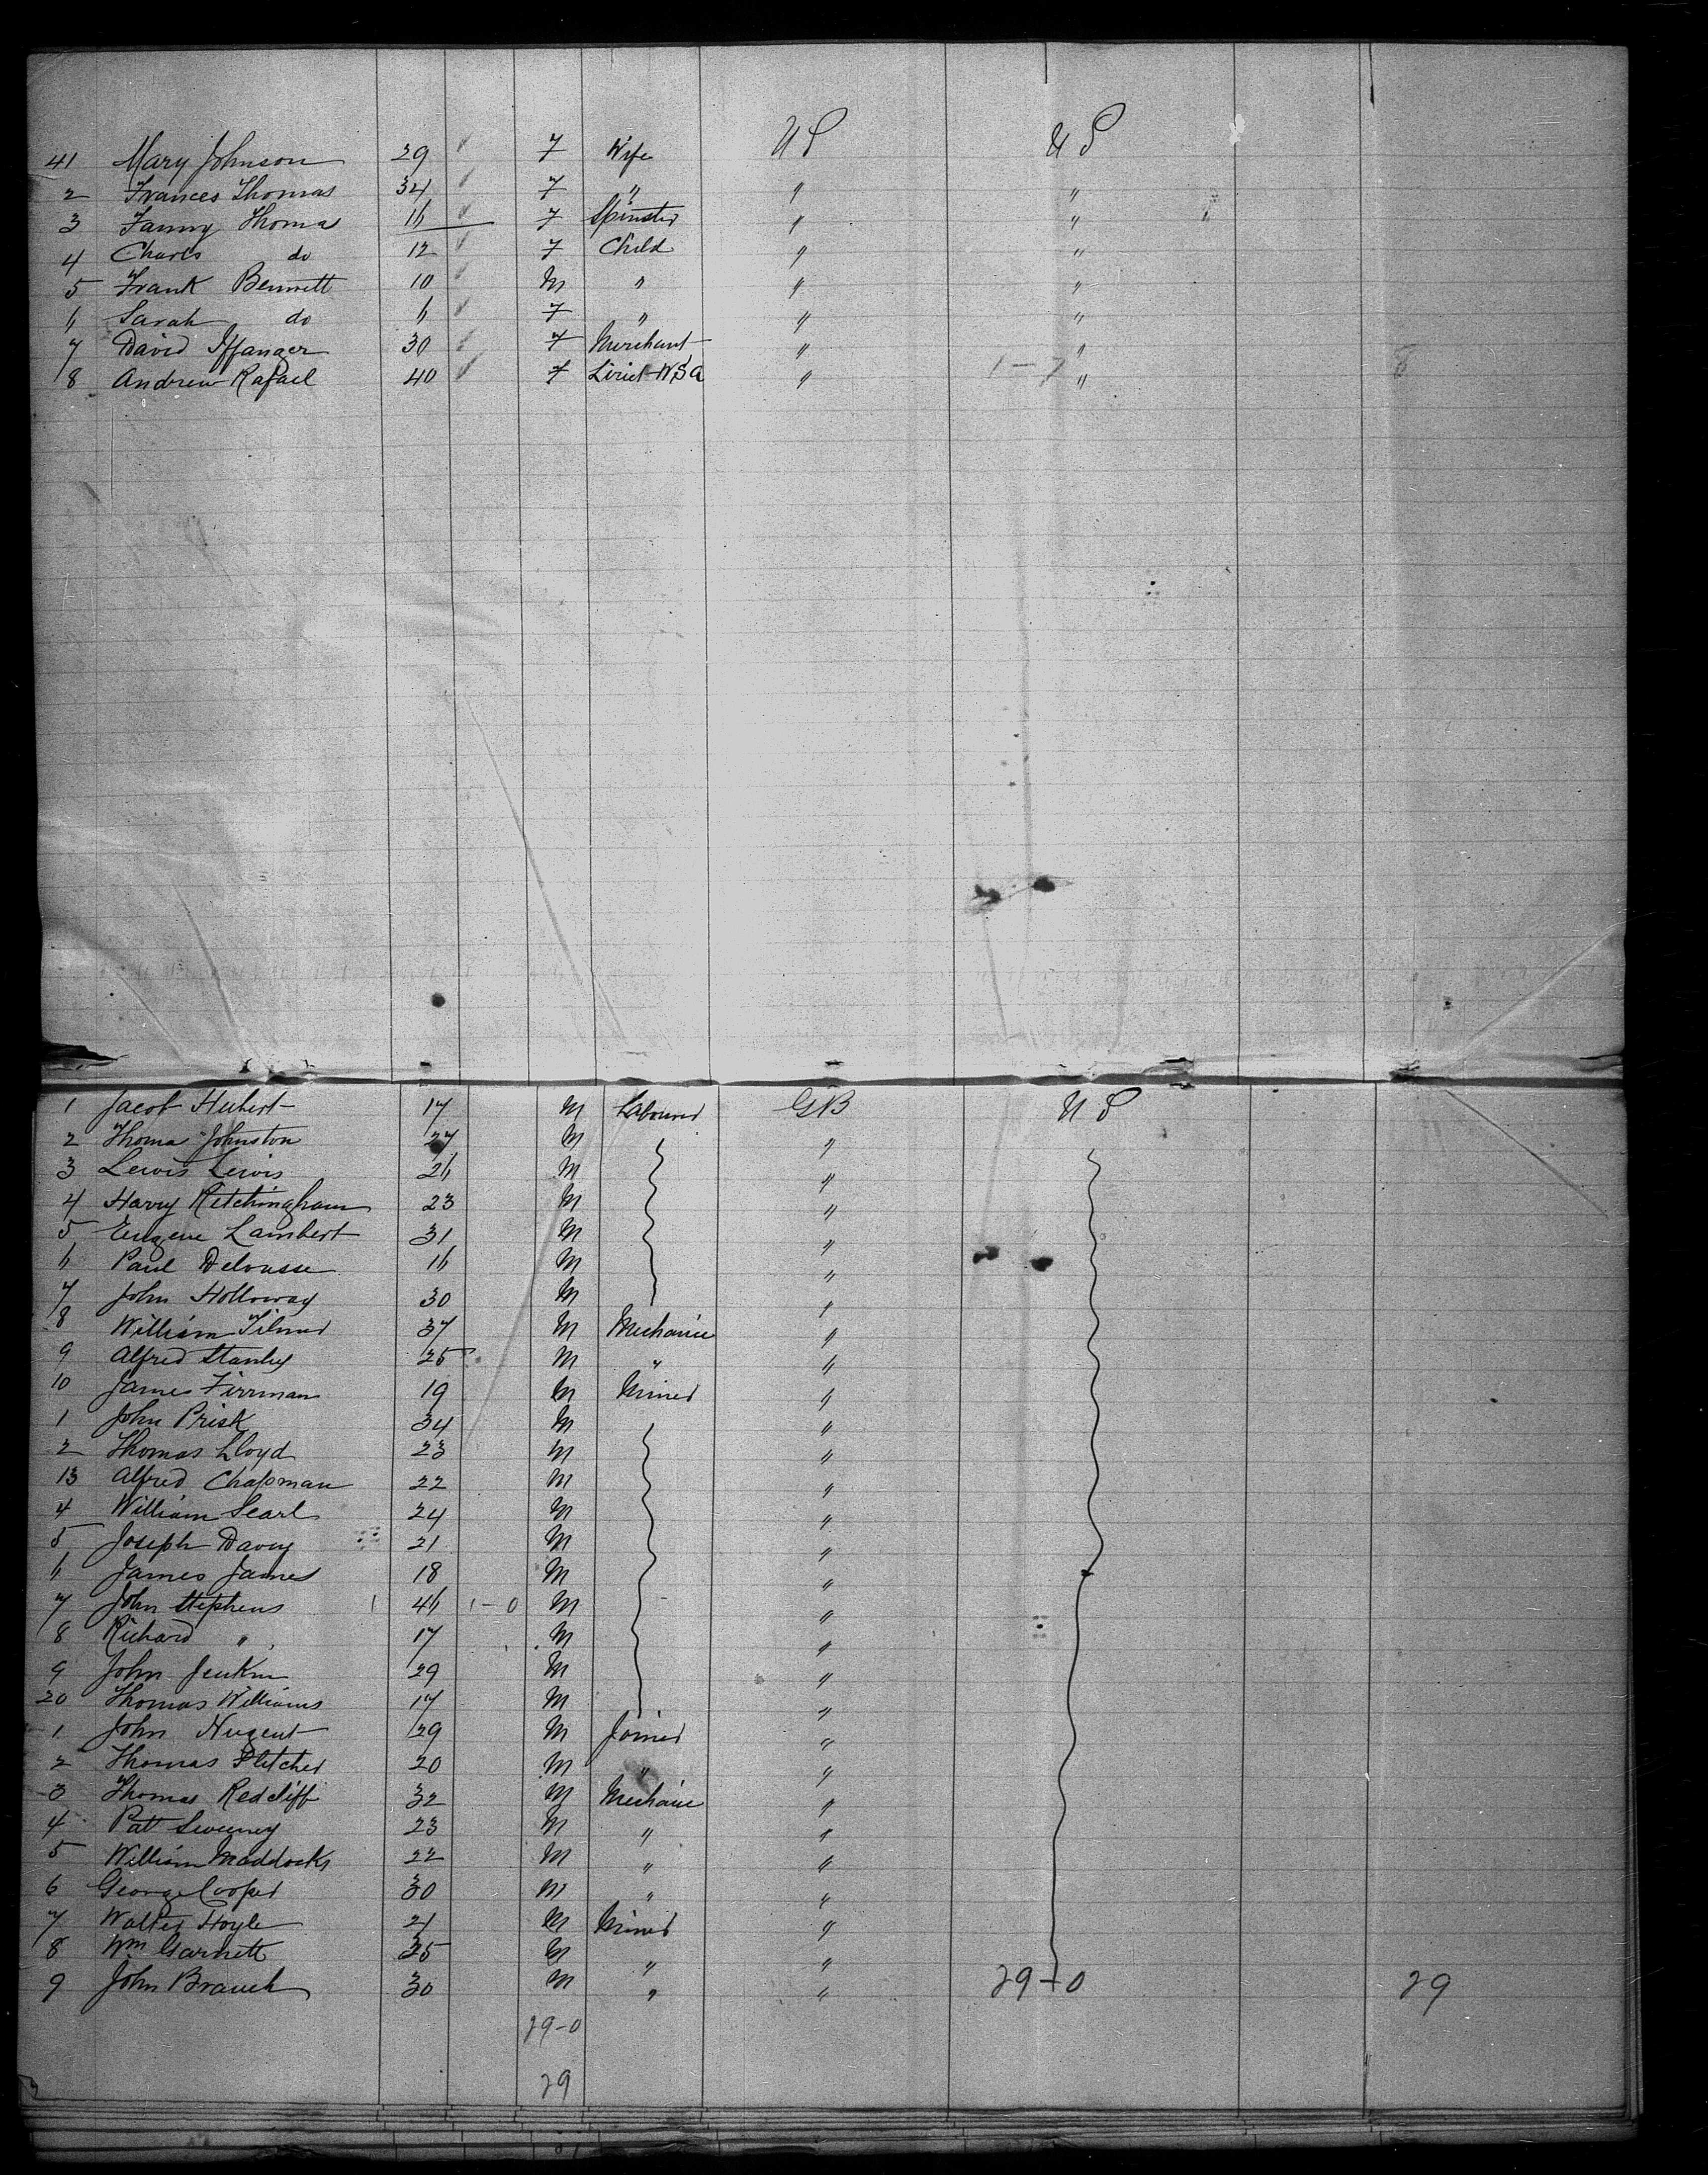 41 Mary Johnson 29 F Wife U S U S
2 Frances Thomas 34 F " " "
3 Fanny Thomas 16 F Spinster " "
4 Charls do 12 F Child " "
5 Frank Bennett 10 M " " "
6 Sarah do 6 F " " "
7 David 30 F Merchant " "
8 Andrew Rafael 40 F Lieut USA " 1-7 " 8
1 Jacob Hubert 17 M Labourer GB U S
2 Thomas Johnston 27 M "
3 Lewis Lewis 26 M "
4 Harry Ketchingham 23 M "
5 Eugene Lambert 31 M "
6 Paul Delousse 16 M "
7 John Holloway 30 M "
8 William 37 M Mechanic "
9 Alfred Stanley 25 M " "
10 James Firrman 19 M Miner "
1 John Prisk 34 M "
2 Thomas Lloyd 23 M "
13 Alfred Chapman 22 M "
4 William Searl 24 M "
5 Joseph Davey 21 M "
6 James James 18 M "
7 John Stephens 1 46 1-0 M "
8 Richard " 17 M "
9 John Jenkin 29 M "
20 Thomas Williams 17 M "
1 John Nugent 29 M Joiner "
2 Thomas Fletcher 20 M " "
3 Thomas Redcliff 32 M Mechanic "
4 Patt Sweeney 23 M " "
5 William Maddocks 22 M " "
6 George Cooper 30 M " "
7 Walter Hoyle 21 M Miner "
8 Wm Garnett 35 M " "
9 John Brauch 30 M " " 29-0 29
29-0
29